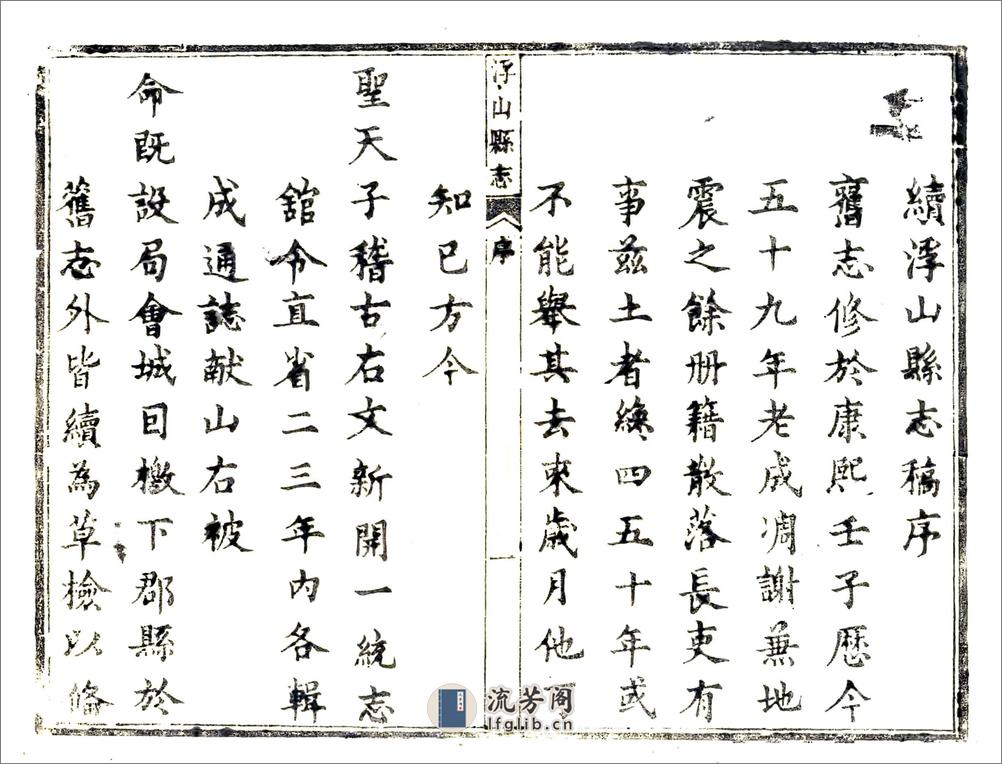 續浮山縣志稿序
舊志修於康熙壬子歷今
五十九年老成凋謝兼地
震之餘册籍散落長吏有
事茲土者纔四五十年或
不能舉其去來歲月他
知已方今
浮山縣志 序
聖天子稽古右文新開一統志
舘令直省二三年內各輯
成通誌献山右被
命既設局會城因檄下郡縣於
舊志外皆續為草檢以備
流芳阁
lfglib.cn